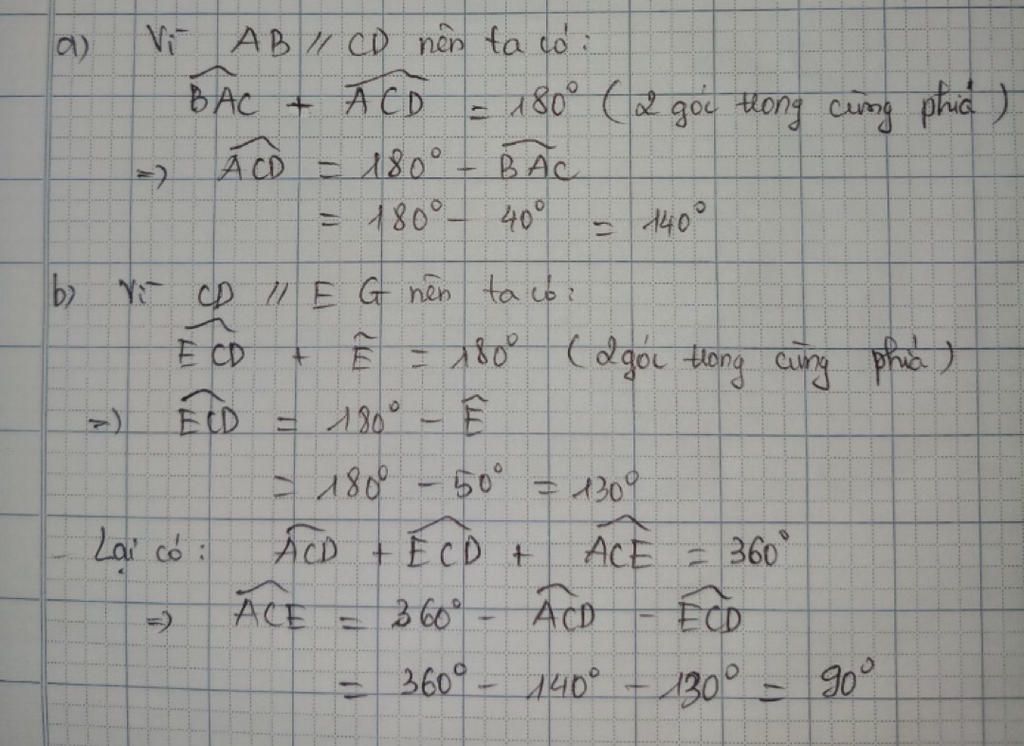 a) Vì AB // CD nên ta có:
$\widehat{BAC} + \widehat{ACD} = 180°$ (2 góc trong cùng phía)
=> $\widehat{ACD} = 180° - \widehat{BAC}$
= 180° - 40° = 140°
b) Vì CD // EG nên ta có:
$\widehat{ECD} + \widehat{E} = 180°$ (2 góc trong cùng phía)
=> $\widehat{ECD} = 180° - \widehat{E}$
= 180° - 50° = 130°
- Lại có: $\widehat{ACD} + \widehat{ECD} + \widehat{ACE} = 360°$
=> $\widehat{ACE} = 360° - \widehat{ACD} - \widehat{ECD}$
= 360° - 140° - 130° = 90°